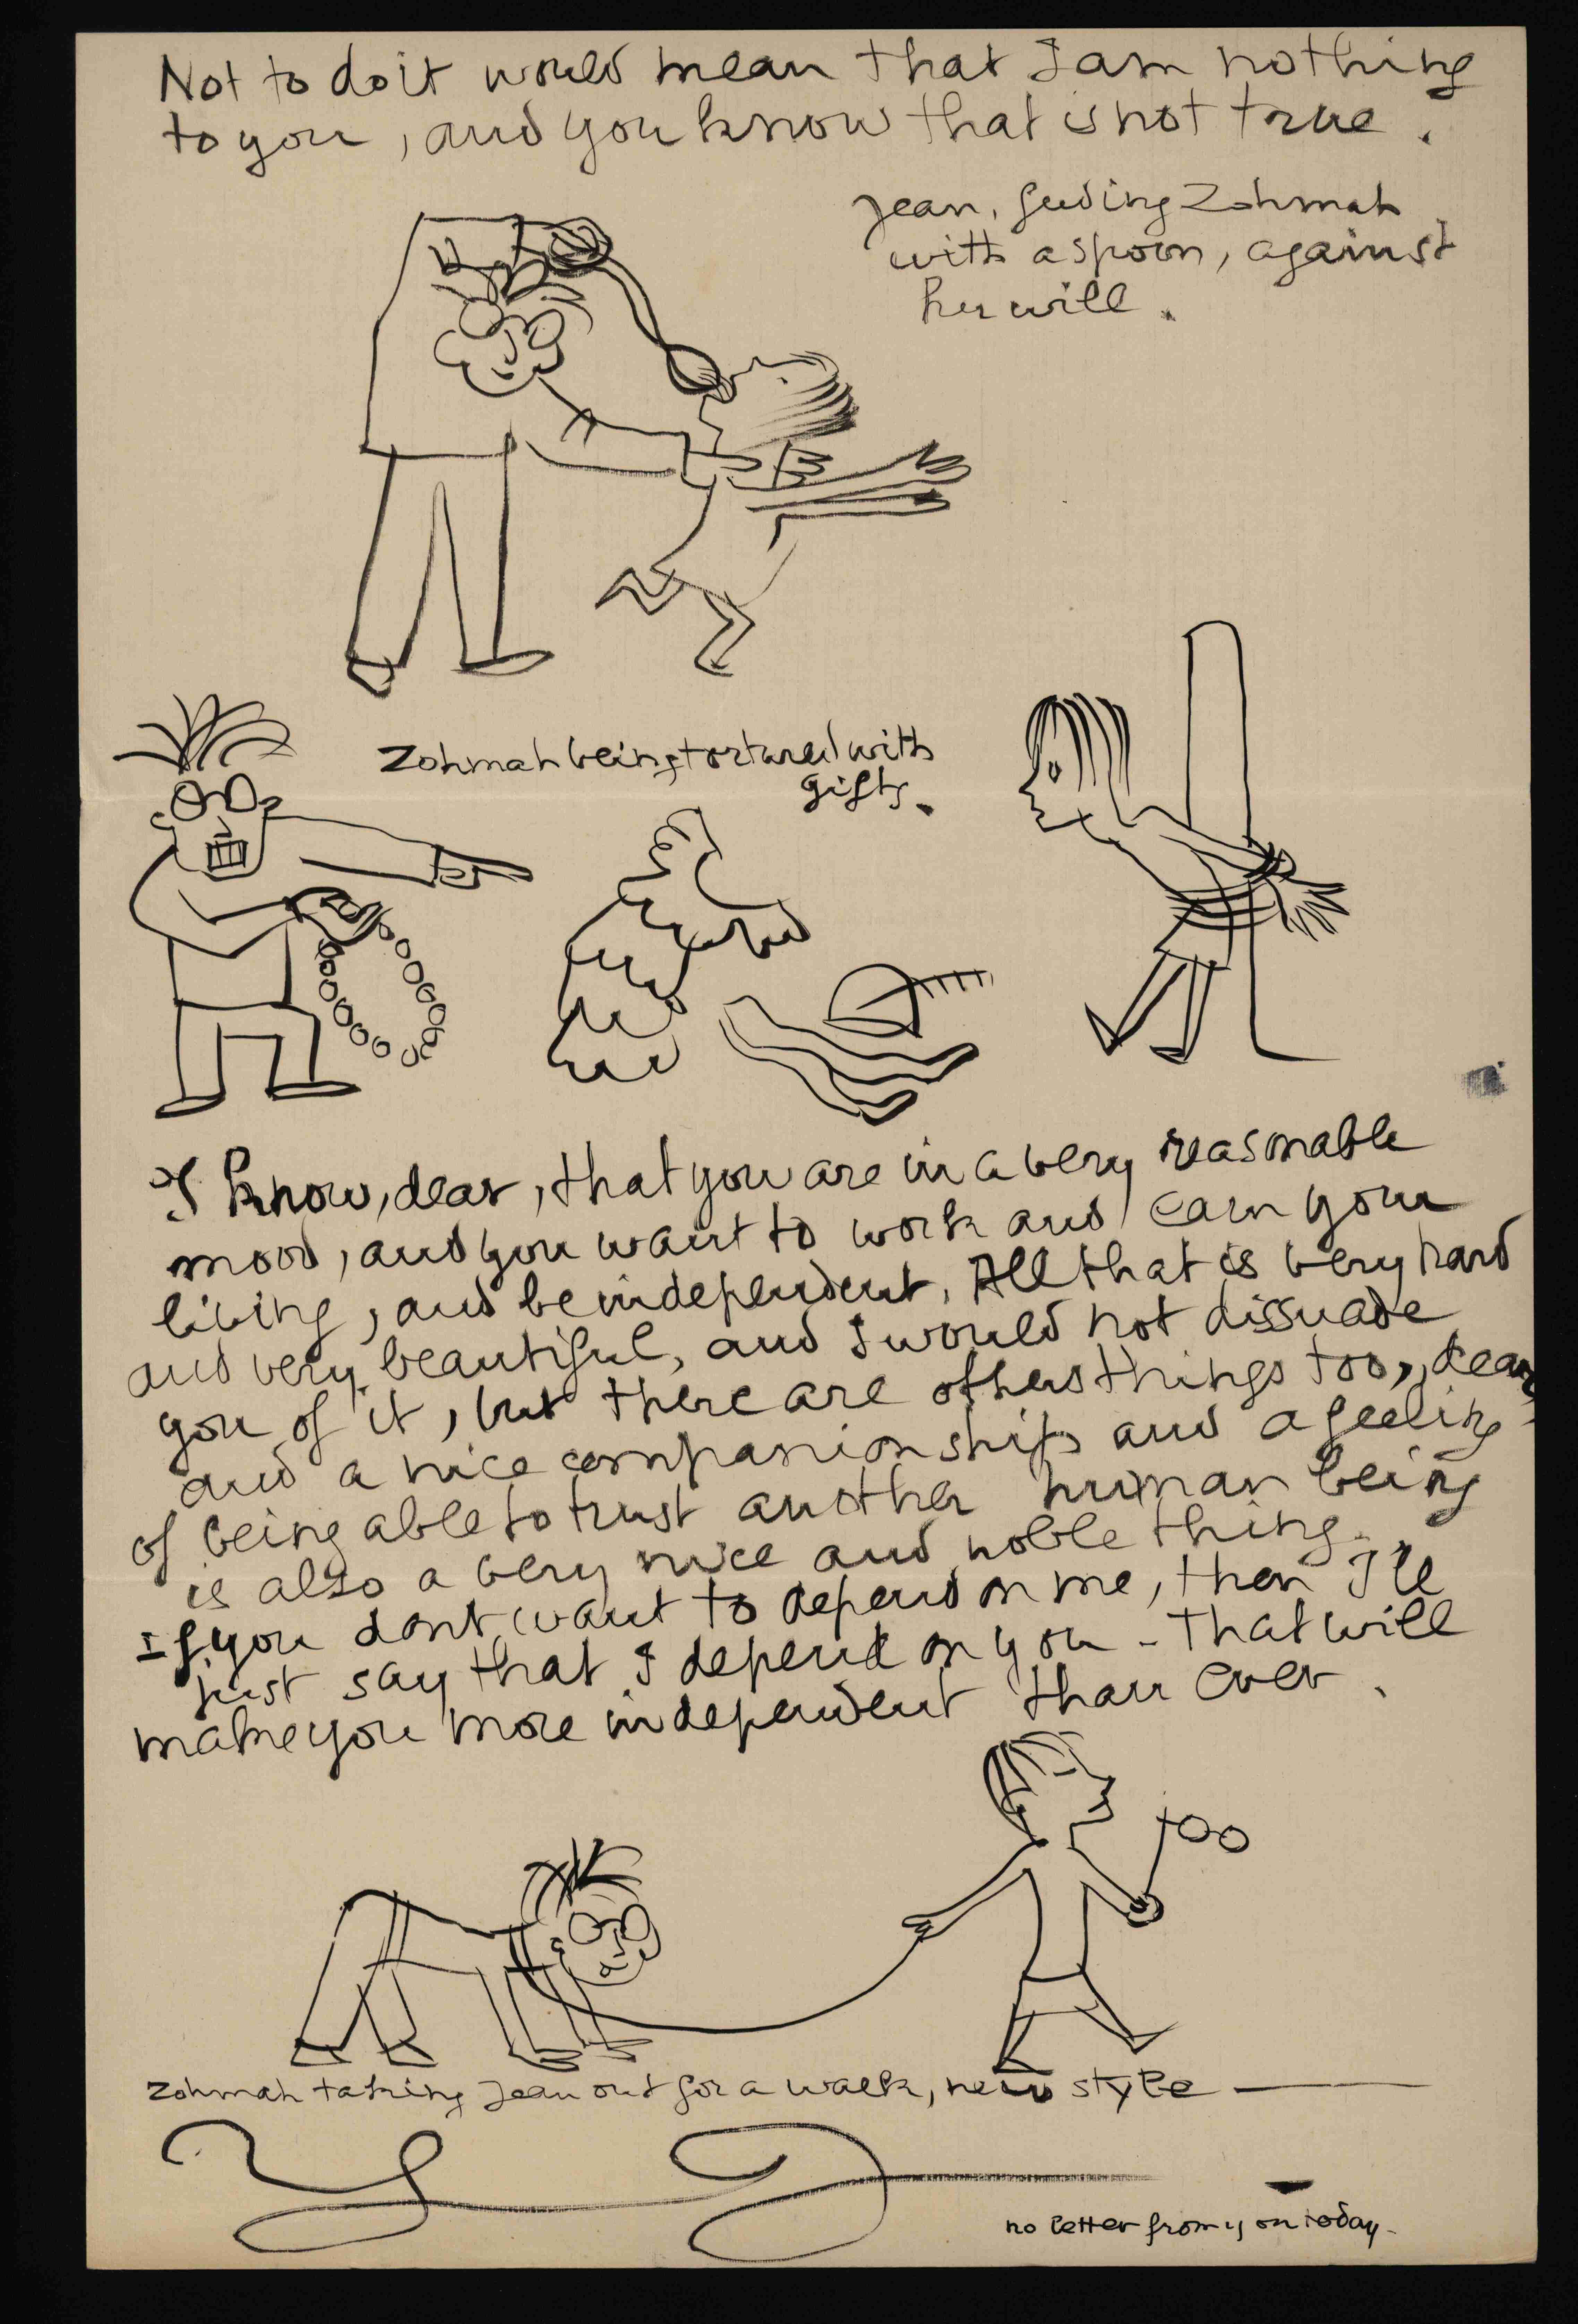 Not to do it would mean that I am nothing
to you, and you know that is not true.
Jean, feeding Zohmah
with a spoon, against
her will.
Zohmah being tortured with
gifts.
I know, dear, that you are in a very reasonable
mood, and you want to work and earn your
living, and be independent. All that is very hard
and very beautiful, and I would not dissuade
you of it, but there are others things too, dear,
and a nice companionship and a feeling
of being able to trust another human being
is also a very nice and noble thing.
If you dont want to depend on me, then I'll
just say that I depend on you - that will
make you more independent than ever.
Zohmah taking Jean out for a walk, new style
no letter from you today.